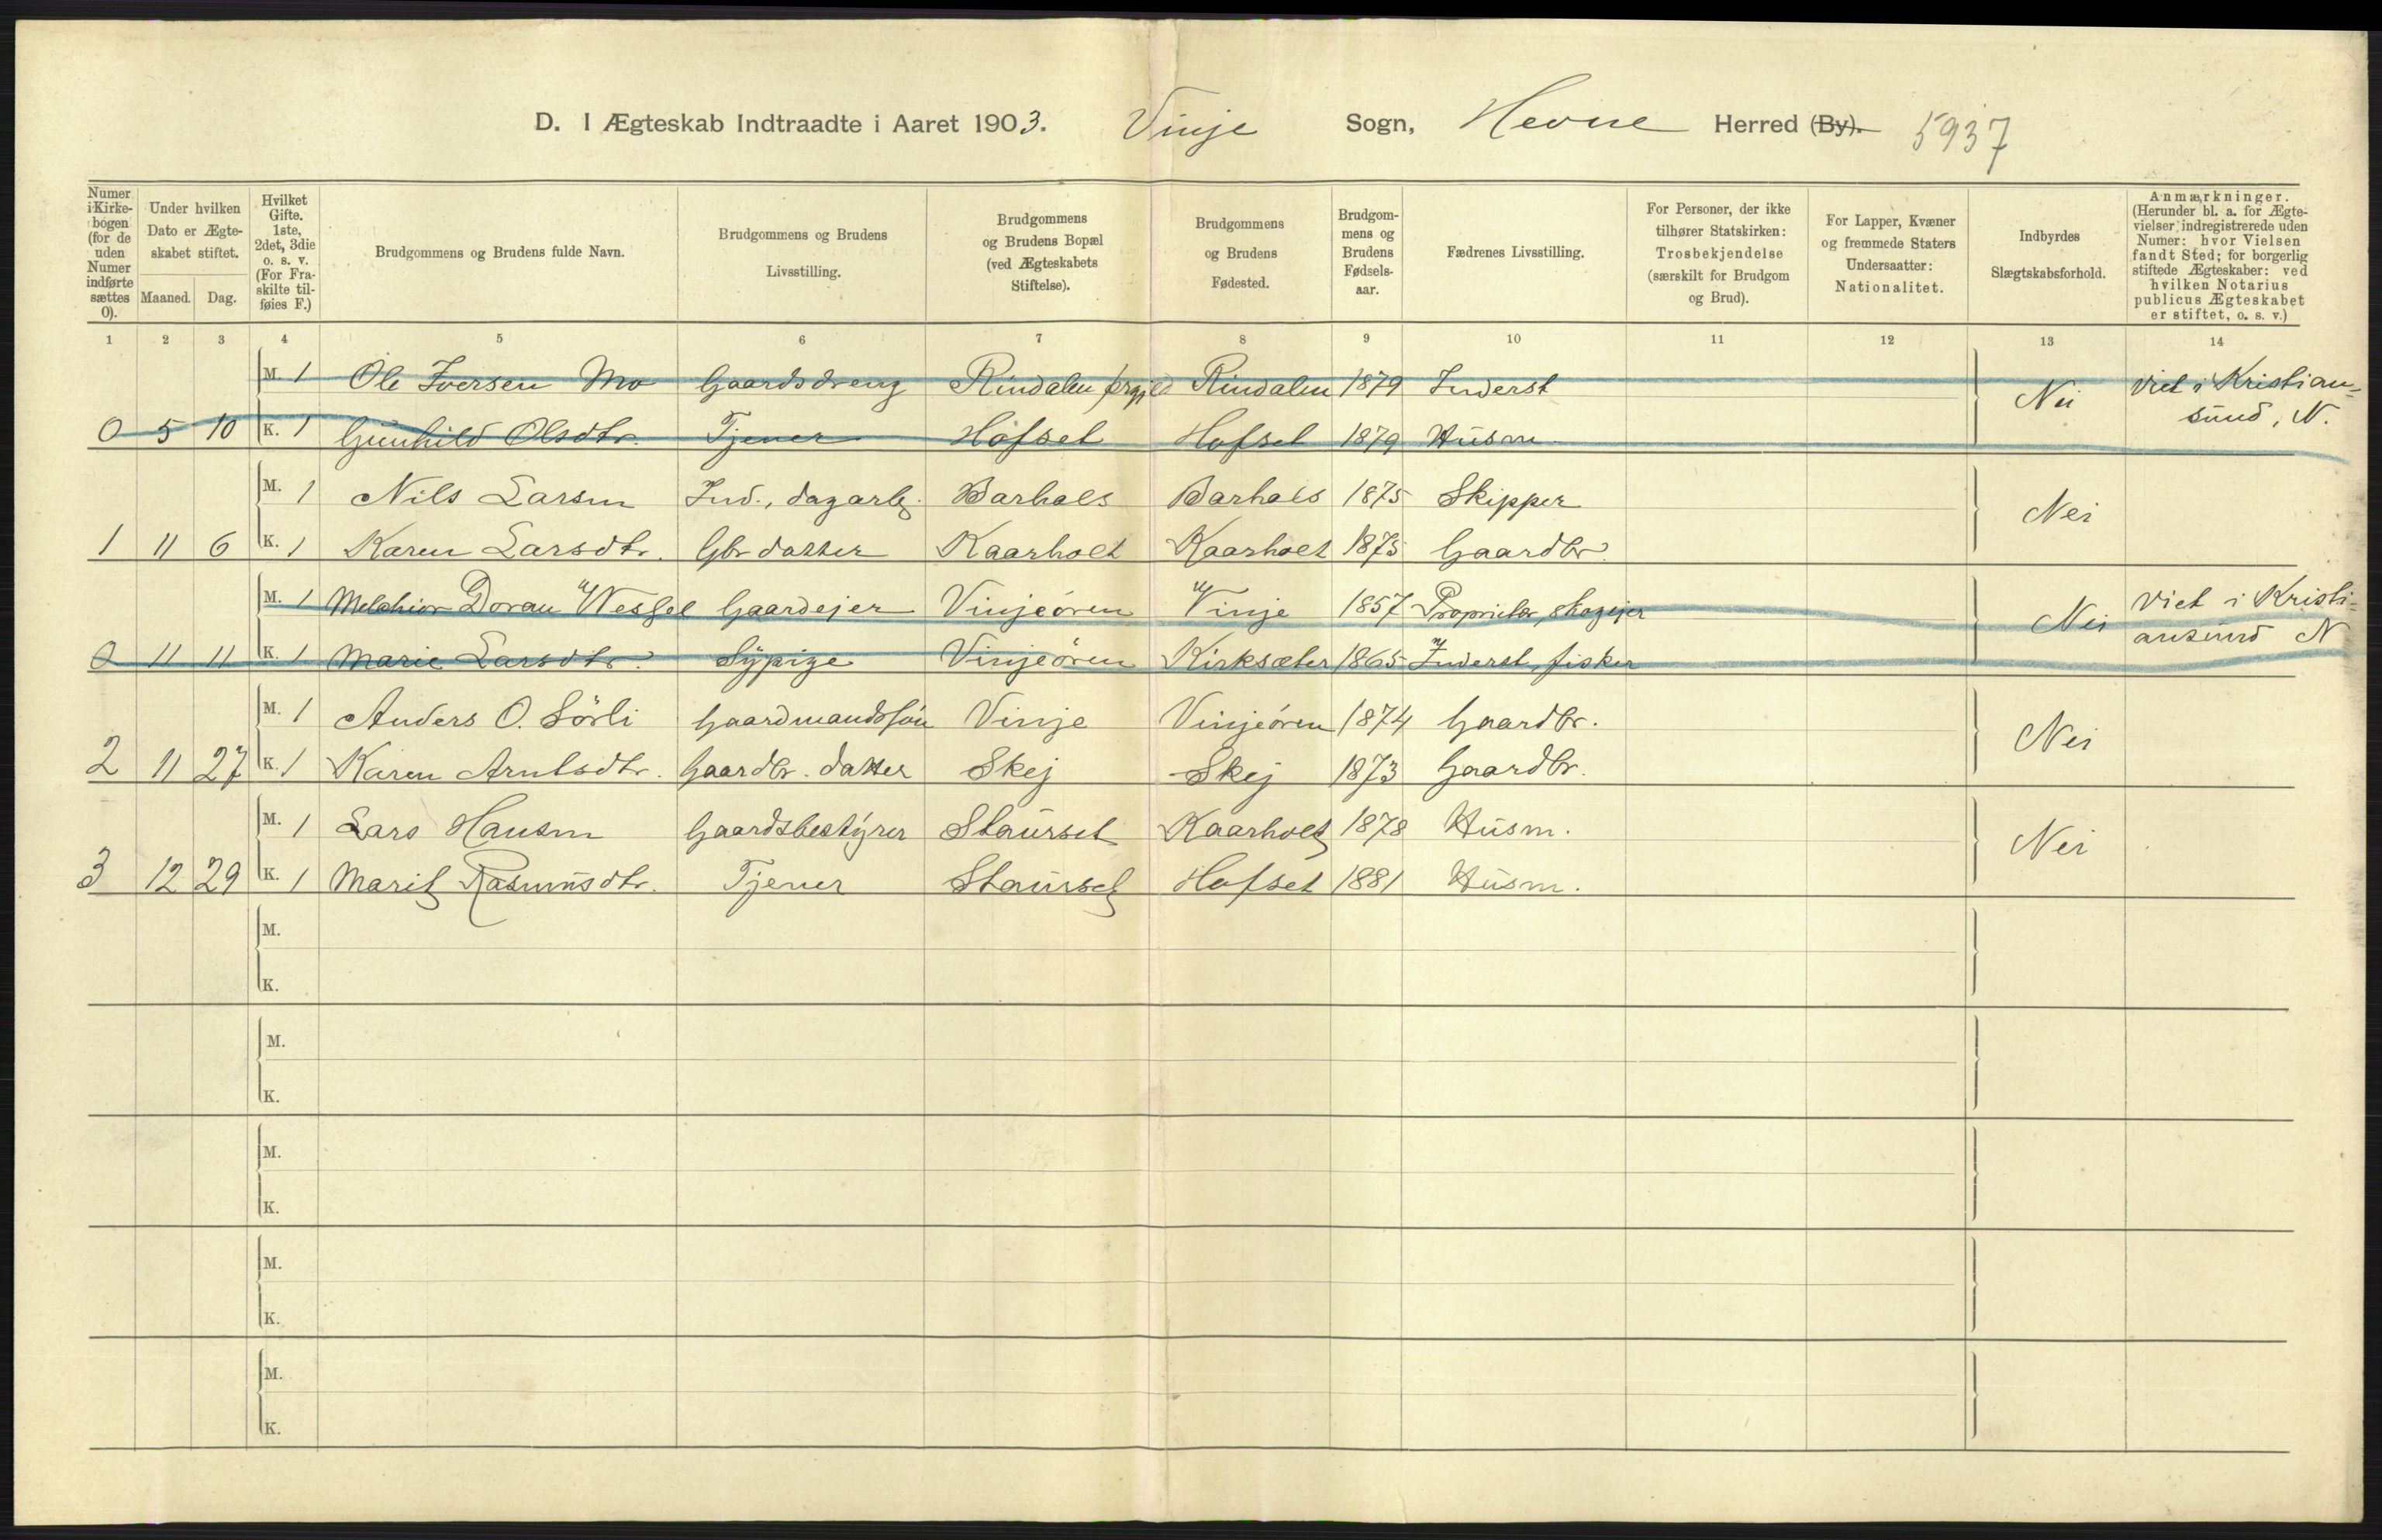 D. I Ægteskab Indtraadte i Aaret 1903. Vinje Sogn, Hevne Herred (By). 5937
Numer i Kirkebogen (for de uden Numer indførte sættes 0). Under hvilken Dato er Ægteskabet stiftet. Maaned. Dag. Hvilket Gifte. 1ste, 2det, 3die o. s. v. (For Fraskilte tilføies F.) Brudgommens og Brudens fulde Navn. Brudgommens og Brudens Livsstilling. Brudgommens og Brudens Bopæl (ved Ægteskabets Stiftelse). Brudgommens og Brudens Fødested. Brudgommens og Brudens Fødselsaar. Fædrenes Livsstilling. For Personer, der ikke tilhører Statskirken: Trosbekjendelse (særskilt for Brudgom og Brud). For Lapper, Kvæner og fremmede Staters Undersaatter: Nationalitet. Indbyrdes Slægtskabsforhold. Anmærkninger. (Herunder bl. a. for Ægtevielser indregistrerede uden Numer: hvor Vielsen fandt Sted; for borgerlig stiftede Ægteskaber: ved hvilken Notarius publicus Ægteskabet er stiftet, o. s. v.)
1 2 3 4 5 6 7 8 9 10 11 12 13 14
M. 1 Ole Iversen Mo Gaardsdreng Rindalen prgjld Rindalen 1879 Inderst Nei Viet i Kristian=
0 5 10 K. 1 Gunhild Olsdtr. Tjener Hofset Hofset 1879 Husm. sund, N.
M. 1 Nils Larsen Ind., dagarb. Barhals Barhals 1875 Skipper Nei
1 11 6 K. 1 Karen Larsdtr. Gbr datter Kaarholt Kaarholt 1875 Gaardbr.
M. 1 Melchior Doran Wessel Gaardejer Vinjeören Vinje 1857 Proprietær, skogejer Nei Viet i Kristi=
0 11 11 K. 1 Marie Larsdtr. Sypige Vinjeören Kirksæter 1865 Inderst, fisker ansund N
M. 1 Anders O. Sörli Gaardmandssön Vinje Vinjeören 1874 Gaardbr. Nei
2 11 27 K. 1 Karen Arntsdtr. Gaardbr. datter Skej Skej 1873 Gaardbr.
M. 1 Lars Hansen Gaardsbestyrer Staurset Kaarholt 1878 Husm. Nei
3 12 29 K. 1 Marit Rasmusdtr. Tjener Staurset Hofset 1881 Husm.
M.
K.
M.
K.
M.
K.
M.
K.
M.
K.